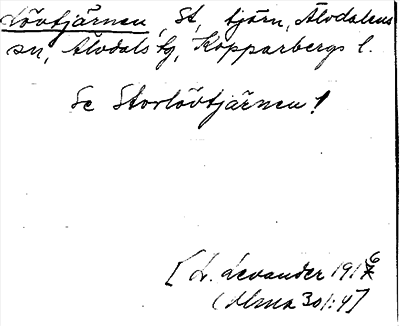 Lövtjärnen, St, tjärn, Älvdalens
sn, Älvdals tg, Kopparbergs l.
Se Storlövtjärnen!
[L. Levander 1916
(Ulma 301:4)]